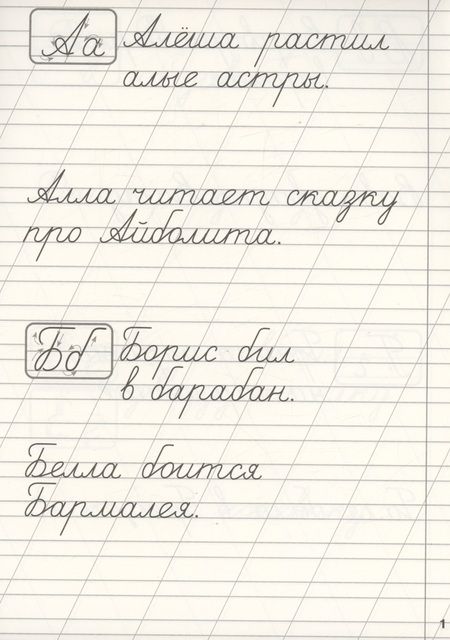 Аа Алёша растил
алые астры.
Алла читает сказку
про Айболита.
Бб Борис бил
в барабан.
Белла боится
Бармалея.
1